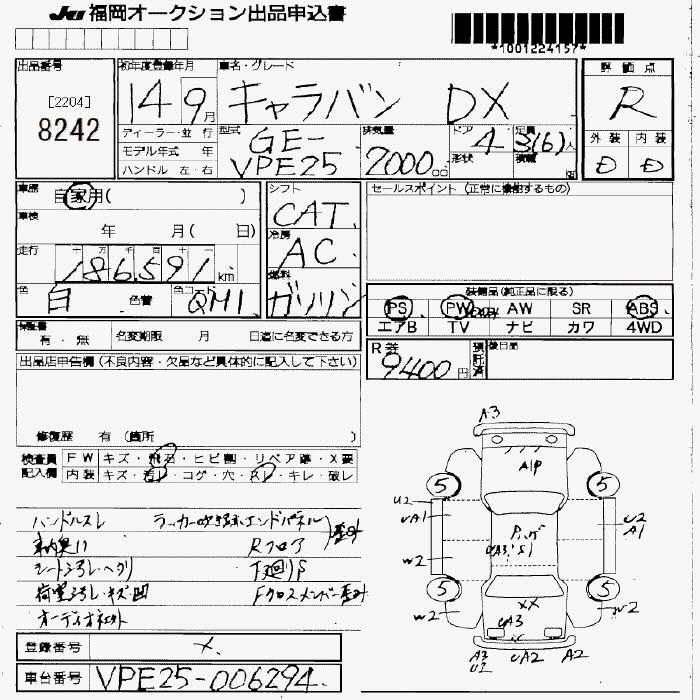 JU 福岡オークション出品申込書
*1001224157*
出品番号
[2204]
8242
初年度登録年月
14 9月
車名・グレード
キャラバン DX
評価点
R
ディーラー・並 行
モデル年式 年
ハンドル 左・右
型式
GE-
VPE25
排気量
2000cc
ドア
4
形状
定員
3(6)人
積載
外装 内装
D D
車歴
自家用( )
車検
年 月( 日)
走行
十 万 千 百 十 一
186,591 km
色
白
色替
カラーコード
QM1
シフト
CAT
冷房
AC
燃料
ガソリン
セールスポイント (正常に機能するもの)
装備品(純正品に限る)
PS PW AW SR ABS
エアB TV ナビ カワ 4WD
保証書
有・無
名変期限 月 日迄に名変できる方
R券
9400円
預託済
後日品
出品店申告欄(不良内容・欠品など具体的に記入して下さい)
修復歴 有(箇所 )
検査員
記入欄
FW キズ・飛石・ヒビ割・リペア跡・X要
内装 キズ・汚レ・コゲ・穴・スレ・キレ・破レ
ハンドルスレ ラッカー吹き跡 エンドパネル
車内臭い Rフロア 歪み
シート汚レ・ヘタリ 下廻りS
荷室汚レ・キズ凹 Fクロスメンバー歪み
オーディオネット
A3
A1P
5 5
U2
UA1
W2
U2
A1
UA3 S1
5 5
W2
XX
W2
UA3
A3
U2
UA2
A2
登録番号
車台番号 VPE25-006294